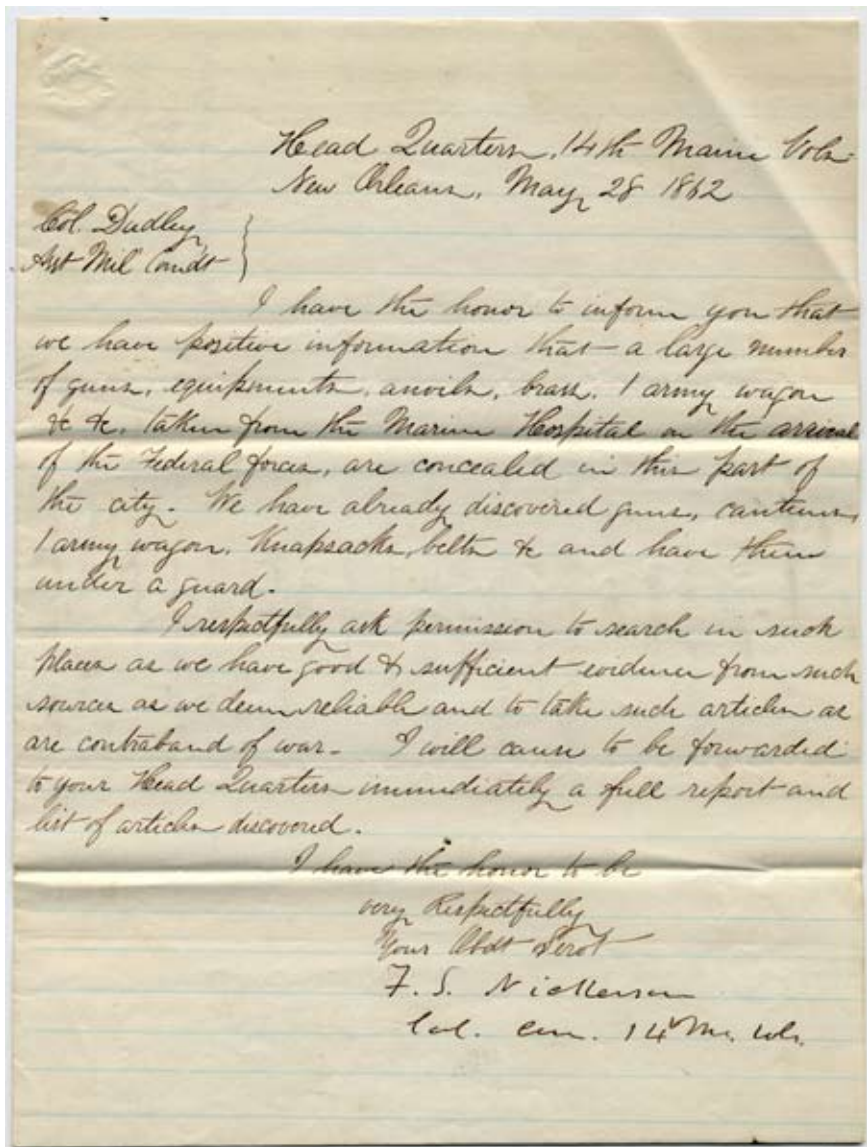 Head Quarters, 14th Maine Vols
New Orleans, May 28 1862
Col. Dudley
Asst Mil Comdt
I have the honor to inform you that
we have positive information that a large number
of guns, equipments, anvils, brass, 1 army wagon
&c &c, taken from the Marine Hospital on the arrival
of the Federal forces, are concealed in this part of
the city. We have already discovered guns, canteens,
1 army wagon, Knapsacks, belts &c and have them
under a guard.
I respectfully ask permission to search in such
places as we have good & sufficient evidence from such
sources as we deem reliable and to take such articles as
are contraband of war. I will cause to be forwarded
to your Head Quarters immediately a full report and
list of articles discovered.
I have the honor to be
very Respectfully
Your Obdt Servt
F. S. Nickerson
Col. Com. 14 Me. Vols.